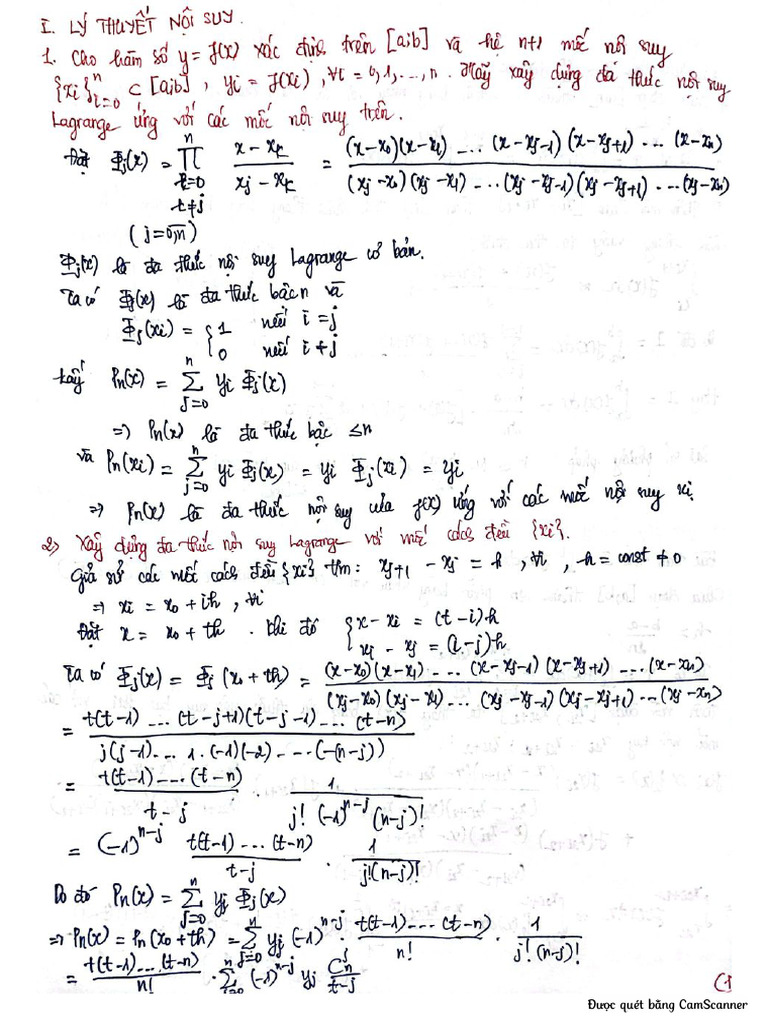 I. LÝ THUYẾT NỘI SUY.
1. Cho hàm số y = f(x) xác định trên [a;b] và hệ n+1 mốc nội suy
{xi}ⁿᵢ₌₀ ⊂ [a;b], yi = f(xi), ∀i = 0,1,...,n. Hãy xây dựng đa thức nội suy
Lagrange ứng với các mốc nội suy trên.
Đặt Φj(x) = ∏ⁿ_{k=0, k≠j} (x - xk)/(xj - xk) = ((x-x0)(x-x1) .... (x-xj-1)(x-xj+1) ... (x-xn))/((xj-x0)(xj-x1) ...(xj-xj-1)(xj-xj+1) ...(xj-xn))
(j=0,n)
Φj(x) là đa thức nội suy Lagrange cơ bản.
Ta có Φj(x) là đa thức bậc n và
Φj(xi) = { 1 nếu i = j
0 nếu i ≠ j
Lấy Pn(x) = ∑ⁿ_{j=0} yi Φj(x)
=> Pn(x) là đa thức bậc ≤n
và Pn(xi) = ∑ⁿ_{j=0} yi Φj(x) = yi Φj(xi) = yi
=> Pn(x) là đa thức nội suy của f(x) ứng với các mốc nội suy xi.
2) Xây dựng đa thức nội suy Lagrange với mốc cách đều {xi}.
Giả sử các mốc cách đều {xi} tm: xj+1 - xj = h, ∀i, h = const ≠ 0
=> xi = x0 + ih, ∀i
Đặt x = x0 + th. Khi đó { x - xi = (t-i)h
xi - xj = (i-j)h
Ta có Φj(x) = Φj(x0 + th) = ((x-x0)(x-x1) ... (x-xj-1)(x-xj+1) ....(x-xn))/((xj-x0)(xj-x1) ... (xj-xj-1)(xj-xj+1)...(xj-xn))
= (t(t-1) ... (t-j+1)(t-j-1) ... (t-n))/(j(j-1)... 1.(-1)(-2) ....(-(n-j)))
= (t(t-1) ... (t-n))/(t-j) . 1/(j!(-1)ⁿ⁻ʲ(n-j)!)
= (-1)ⁿ⁻ʲ (t(t-1) ... (t-n))/(t-j) . 1/(j!(n-j)!)
Do đó Pn(x) = ∑ⁿ_{j=0} yj Φj(x)
=> Pn(x) = Pn(x0 + th) = ∑ⁿ_{j=0} yj (-1)ⁿ⁻ʲ . (t(t-1)....(t-n))/n! . 1/(j!(n-j)!)
= (t(t-1)...(t-n))/n! . ∑ⁿ_{j=0} (-1)ⁿ⁻ʲ yj Cʲn/(t-j)
(1
Được quét bằng CamScanner